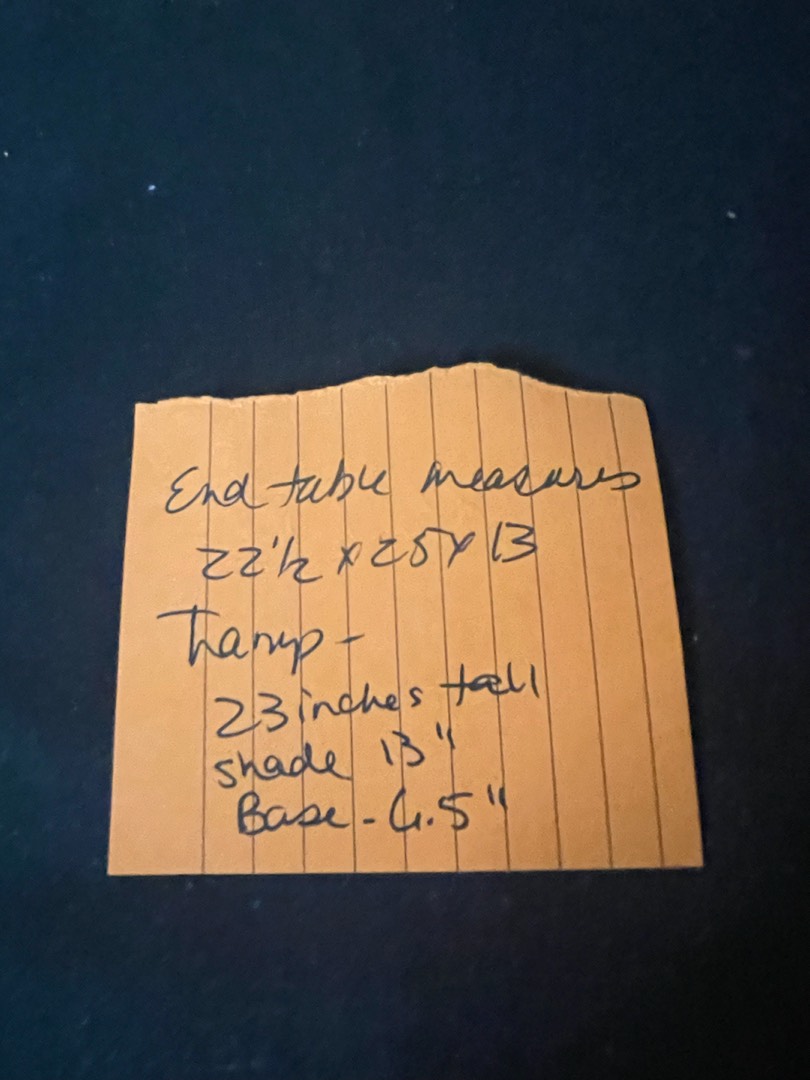 End table measures
22 1/2 x 25 x 13
Lamp -
23 inches tall
shade 13"
Base - 6.5"